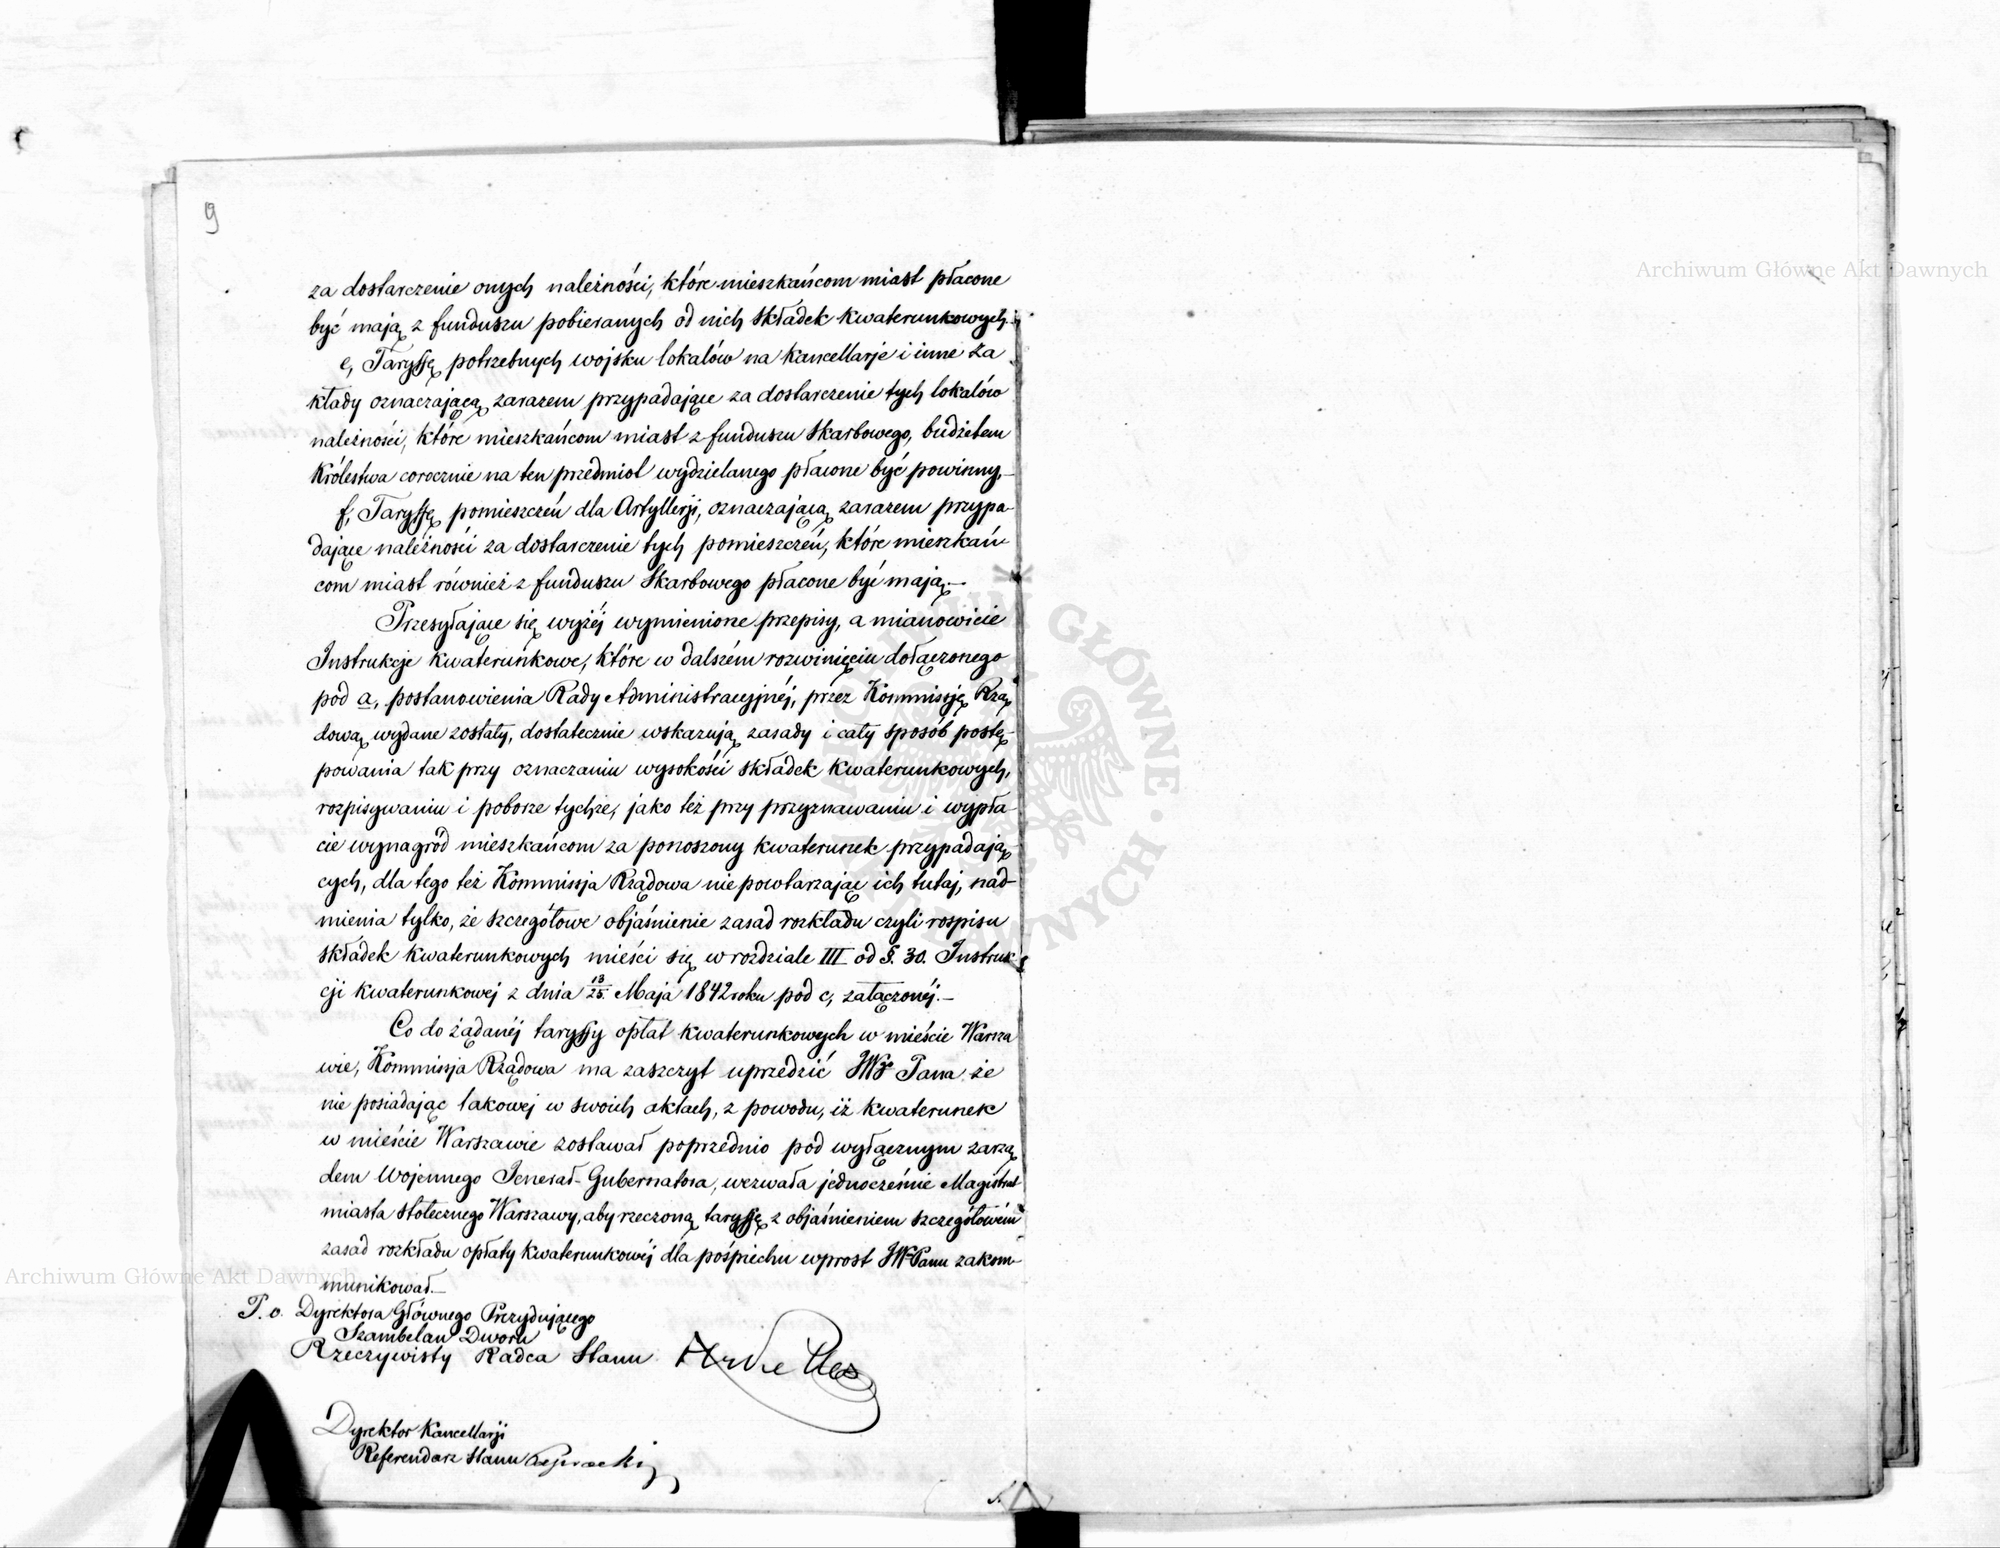 9
za dostarczenie onych należności, które mieszkańcom miast płacone
być mają z funduszu pobieranych od nich składek kwaterunkowych.
e, Taryffę potrzebnych wojsku lokalów na kancellarje i inne za
kłady oznaczającą zarazem przypadające za dostarczenie tych lokalów
należności, które mieszkańcom miast z funduszu Skarbowego, budżetem
Królestwa corocznie na ten przedmiot wydzielanego płacone być powinny.—
f, Taryffę pomieszczeń dla Artyllerji, oznaczającą zarazem przypa-
dające należności za dostarczenie tych pomieszczeń, które mieszkań-
com miast również z funduszu Skarbowego płacone być mają.—
Przesyłające się wyżéj wymienione przepisy, a mianowicie
Instrukcje kwaterunkowe, które w dalszém rozwinięciu dołączonego
pod a, postanowienia Rady Administracyjnéj, przez Kommissję Rzą-
dową wydane zostały, dostatecznie wskazują zasady i cały sposób postę-
powania tak przy oznaczaniu wysokości składek kwaterunkowych,
rozpisywaniu i poborze tychże, jako też przy przyznawaniu i wypła-
cie wynagród mieszkańcom za ponoszony kwaterunek przypadają-
cych, dla tego też Kommissja Rządowa niepowtarzając ich tutaj, nad-
mienia tylko, że szczegółowe objaśnienie zasad rozkładu czyli rospisu
składek kwaterunkowych mieści się w rozdziale III od §. 30. Instruk-
cji kwaterunkowej z dnia 13/25. Maja 1842 roku pod c, załączonéj.—
Co do żądanéj taryffy opłat kwaterunkowych w mieście Warsza
wie, Kommissja Rządowa ma zaszczyt uprzedzić JWgo Pana że
nie posiadając takowej w swoich aktach, z powodu, iż kwaterunek
w mieście Warszawie zostawał poprzednio pod wyłącznym zarzą
dem Wojennego Jenerał-Gubernatora, wezwała jednocześnie Magistrat
miasta stołecznego Warszawy, aby rzeczoną taryffę z objaśnieniem szczegółowém
zasad rozkładu opłaty kwaterunkowéj dla pośpiechu wprost JW Panu zakom-
munikował.—
P. o. Dyrektora Głównego Prezydującego
Szambelan Dworu
Rzeczywisty Radca Stanu
Dyrektor Kancellarji
Referendarz Stanu
Archiwum Główne Akt Dawnych
Archiwum Główne Akt Dawnych